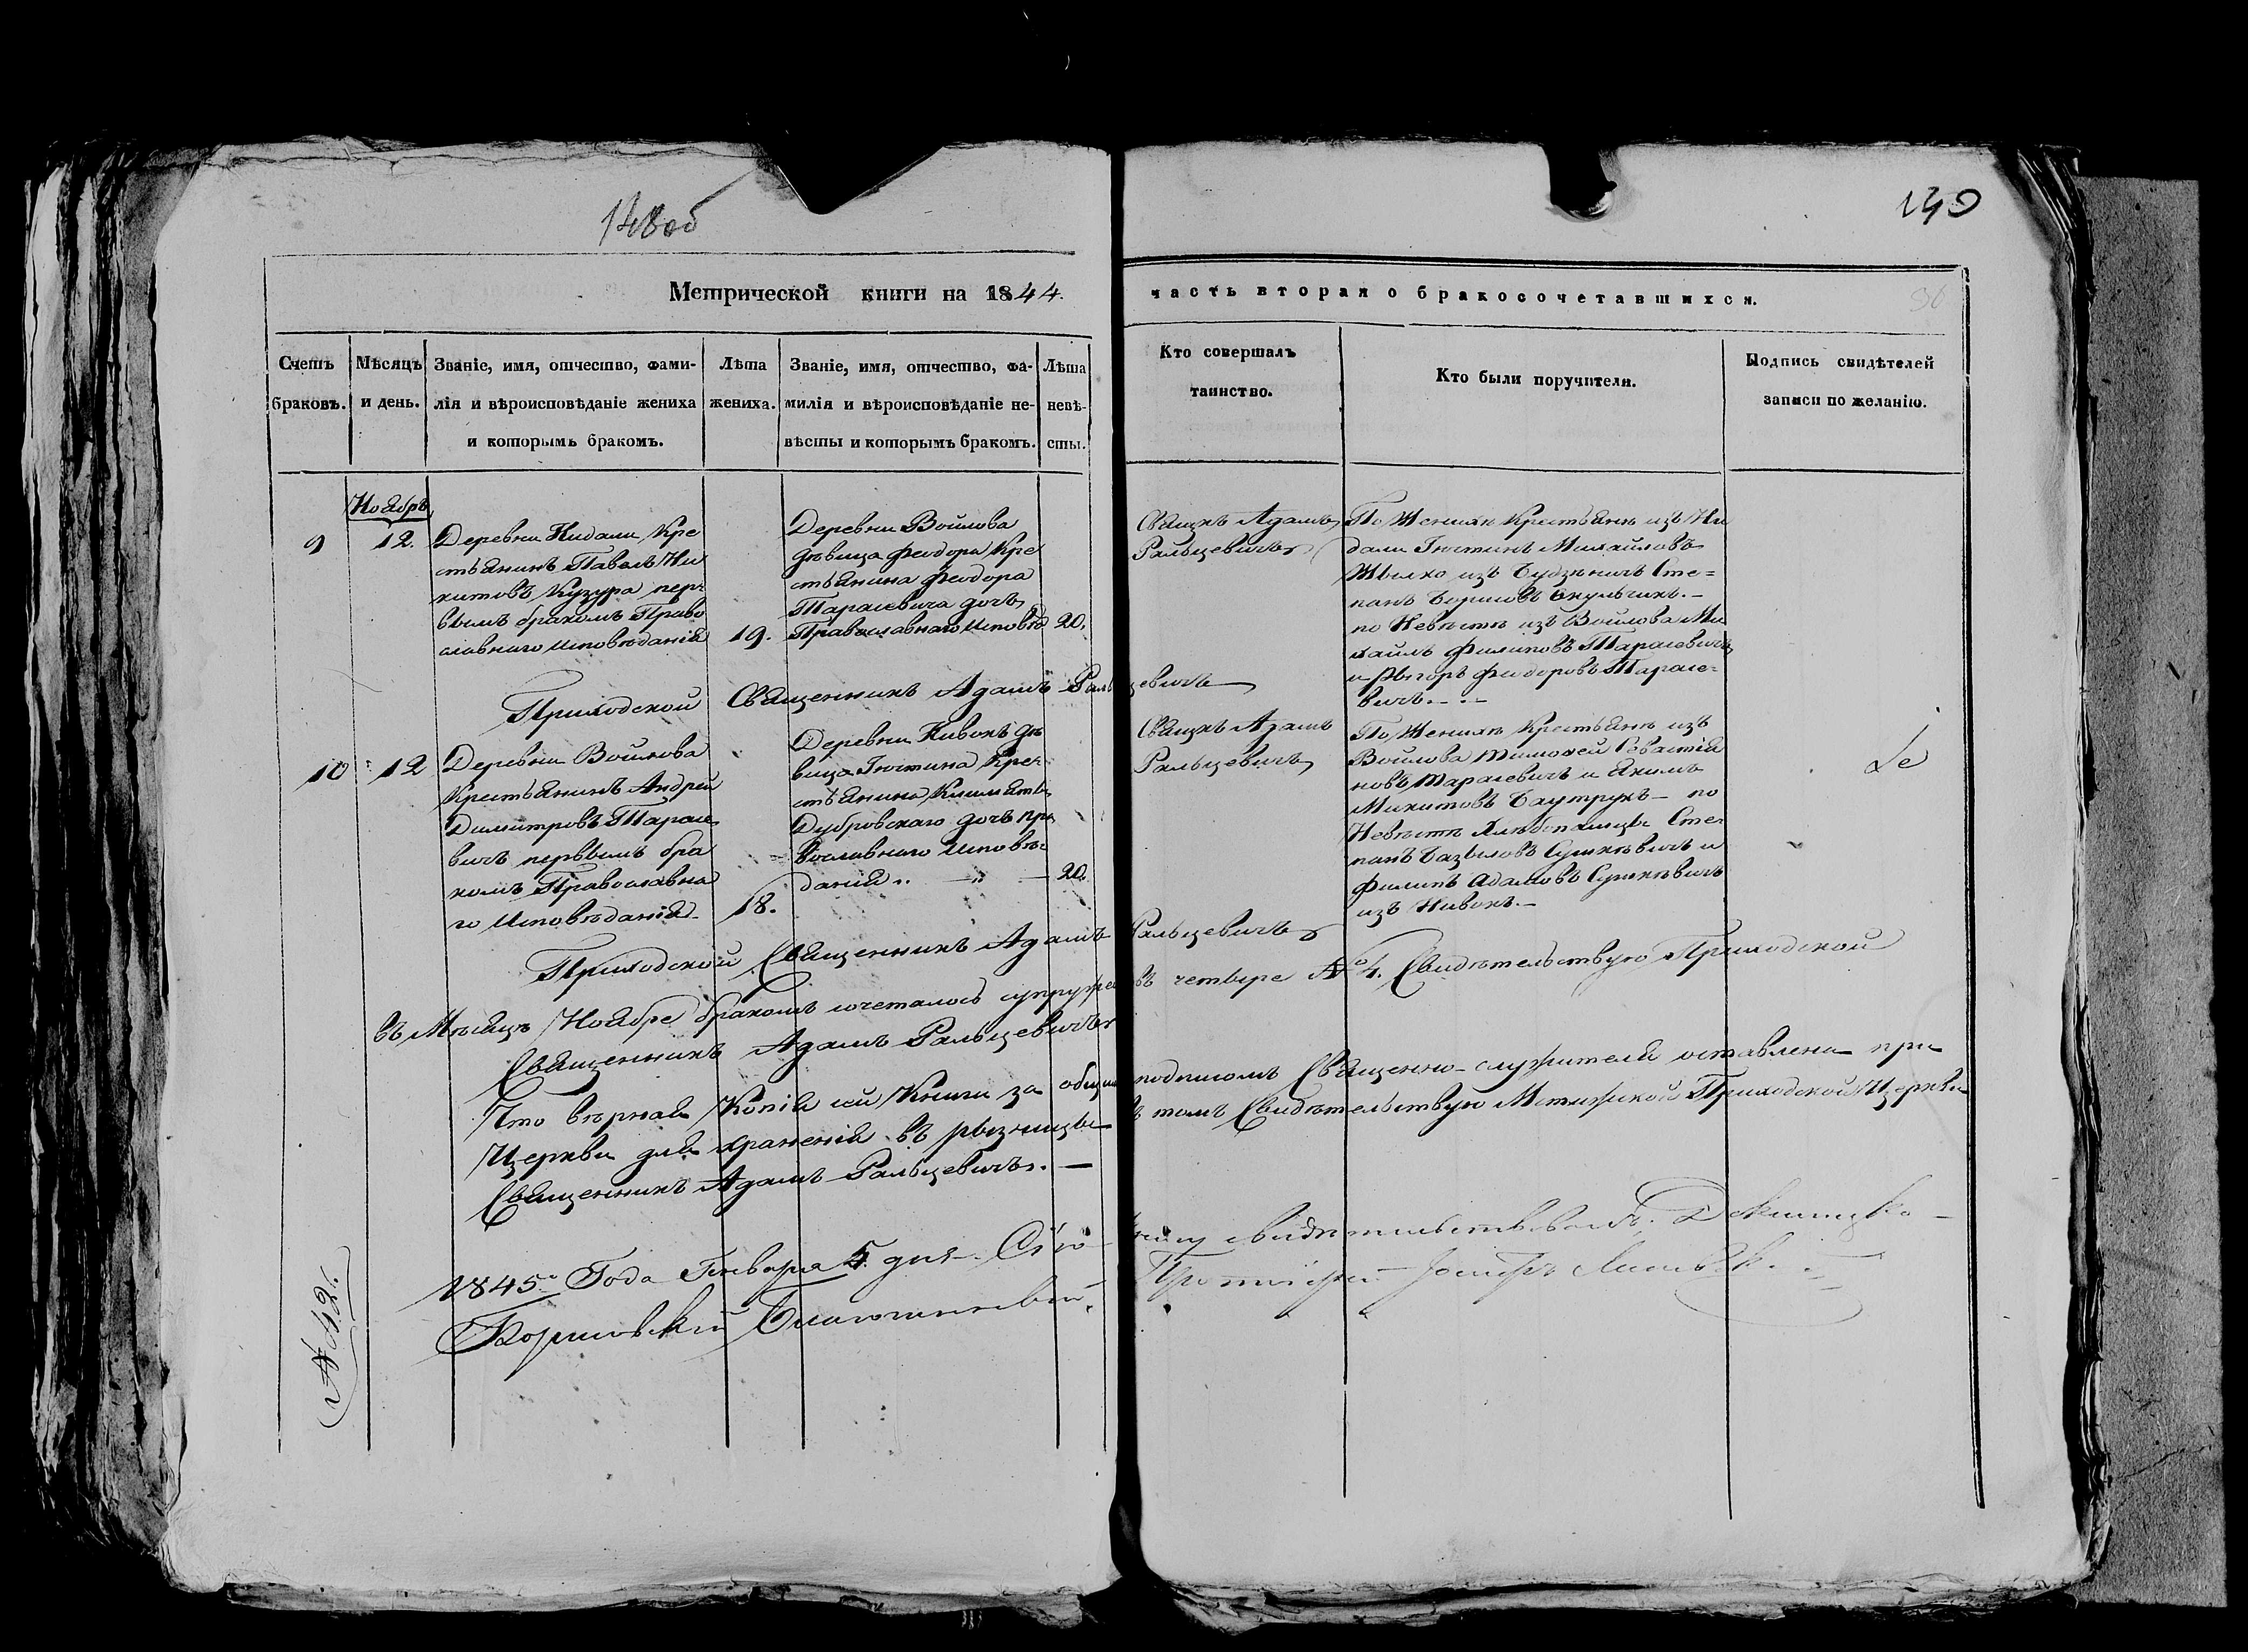 148об
140
Метрической книги на 1844.
часть вторая о бракосочетавшихся.
Счетъ браковъ.
Мѣсяцъ и день.
Званіе, имя, отчество, фами-
лія и вѣроисповѣданіе жениха
и которымъ бракомъ.
Лѣта
жениха.
Званіе, имя, отчество, фа-
милія и вѣроисповѣданіе не-
вѣсты и которымъ бракомъ.
Лѣта
невѣ-
сты.
Кто совершалъ
таинство.
Кто были поручители.
Подпись свидѣтелей
записи по желанію.
Ноябрь
9
12.
Деревни Нидали Кре
стьянинъ Павелъ Ни
китовъ Кузура пер
вымъ бракомъ Право
славнаго исповѣданія
19.
Деревни Войлова
дѣвица Феодора Кре
стьянина Феодора
Тарасевича дочь
Православнаго исповѣд
20.
Свящкъ Адамъ
Ральцевичъ
По Женихѣ Крестьяне изъ Ни
дали Іюстинъ Михайловъ
изъ Сте=
панъ Борисовъ Акульчикъ.–
по Невѣстѣ изъ Войлова Ми
хаилъ Филиповъ Тарасевичъ
и Ѳеодоровъ Тарасе=
вичъ.–
Приходской Священникъ Адамъ Ральцевичъ
10
12
Деревни Войлова
Крестьянинъ Андрей
Димитровъ Тарасе
вичъ первымъ бра
комъ Православна
го исповѣданія
18.
Деревни Нивокъ дѣ
вица Іюстина Кре
стьянина
Дубровскаго дочь пра
вославнаго исповѣ
данія
20.
Свящкъ Адамъ
Ральцевичъ
По Женихѣ Крестьяне изъ
Войлова Тимоѳей Севастія
новъ Тарасевичъ и Якимъ
Микитовъ Баутрукъ – по
Невѣстѣ Сте
панъ Базылевъ Сушкѣвичъ и
Филипъ Адамовъ Сушкѣвичъ
изъ Нивокъ.–
Приходской Священникъ Адамъ Ральцевичъ
въ Мѣсяцѣ Ноябре бракомъ сочеталось супружевъ четыре №4. Свидѣтельствую Приходской
Священникъ Адамъ Ральцевичъ
Что вѣрная Копія сей Книги за общимъ подписомъ Священно-служителя оставлена при
Церкви для храненія въ рызницы въ томъ Свидѣтельствую Приходской Церкви
Священникъ Адамъ Ральцевичъ.–
1845. Года Генваря 5. дня. Сію книгу свидѣтельствовалъ
Борисовскій Благочинный, Протоіерей Іосифъ
№42.